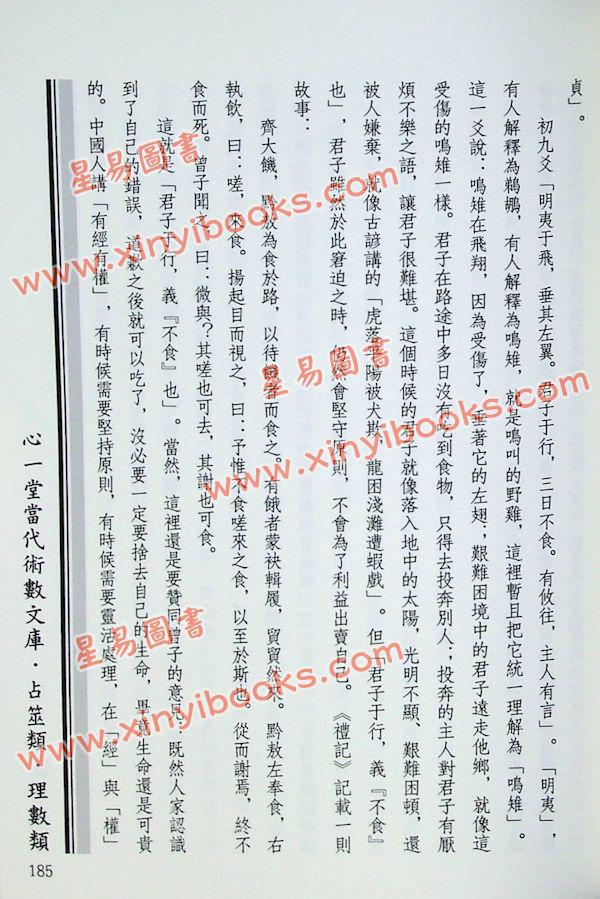 貞」。
初九爻「明夷于飛，垂其左翼。君子于行，三日不食。有攸往，主人有言」。「明夷」，
有人解釋為鵜鶘，有人解釋為鳴雉，就是鳴叫的野雞，這裡暫且把它統一理解為「鳴雉」。
這一爻說：鳴雉在飛翔，因為受傷了，垂著它的左翅；艱難困境中的君子遠走他鄉，就像這
受傷的鳴雉一樣。君子在路途中多日沒有吃到食物，只得去投奔別人；投奔的主人對君子有厭
煩不樂之語，讓君子很難堪。這個時候的君子就像落入地中的太陽，光明不顯、艱難困頓，還
被人嫌棄，就像古諺講的「虎落平陽被犬欺，龍困淺灘遭蝦戲」。但「君子于行，義『不食』
也」，君子雖然於此窘迫之時，仍然會堅守原則，不會為了利益出賣自己。《禮記》記載一則
故事：
齊大饑，黔敖為食於路，以待餓者而食之。有餓者蒙袂輯履，貿貿然來。黔敖左奉食，右
執飲，曰：嗟，來食。揚起目而視之，曰：予惟不食嗟來之食，以至於斯也。從而謝焉，終不
食而死。曾子聞之，曰：微與？其嗟也可去，其謝也可食。
這就是「君子于行，義『不食』也」。當然，這裡還是要贊同曾子的意見：既然人家認識
到了自己的錯誤，道歉之後就可以吃了，沒必要一定要捨去自己的生命，畢竟生命還是可貴
的。中國人講「有經有權」，有時候需要堅持原則，有時候需要靈活處理，在「經」與「權」
心一堂當代術數文庫・占筮類・理數類
185
星易圖書
www.xinyibooks.com
星易圖書
www.xinyibooks.com
星易圖書
www.xinyibooks.com
星易圖書
www.xinyibooks.com